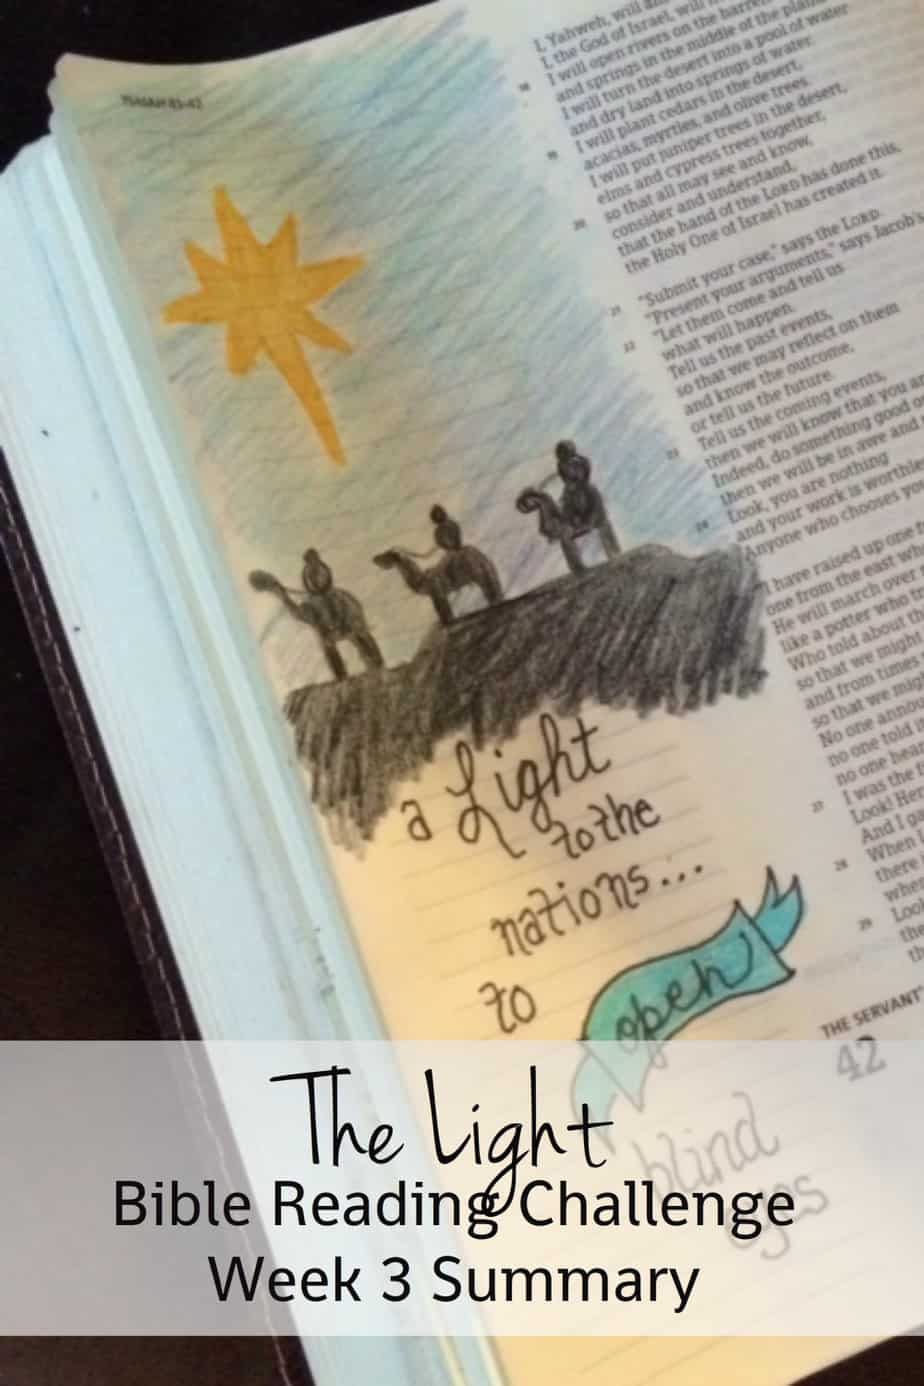 ISAIAH 41-42
I, Yahweh, will
I, the God of Israel, will
I will open rivers on the barren
and springs in the middle of the plains
I will turn the desert into a pool of water
and dry land into springs of water.
I will plant cedars in the desert,
acacias, myrtles, and olive trees.
I will put juniper trees in the desert,
elms and cypress trees together,
so that all may see and know,
consider and understand,
that the hand of the LORD has done this,
the Holy One of Israel has created it.
"Submit your case," says the LORD.
"Present your arguments," says Jacob's
"Let them come and tell us
what will happen.
Tell us the past events,
so that we may reflect on them
and know the outcome,
or tell us the future.
Tell us the coming events,
then we will know that you
Indeed, do something good
then we will be in awe and
Look, you are nothing
and your work is worthless
Anyone who chooses you
I have raised up one
one from the east who
He will march over
like a potter who
Who told about
so that we might
and from times
so that we might
No one
no one told
no one
I was the
Look! Her
And I
When
there
when
Look
a Light
to the
nations...
to
open
blind
eyes
THE SERVANT'
42
The Light
Bible Reading Challenge
Week 3 Summary